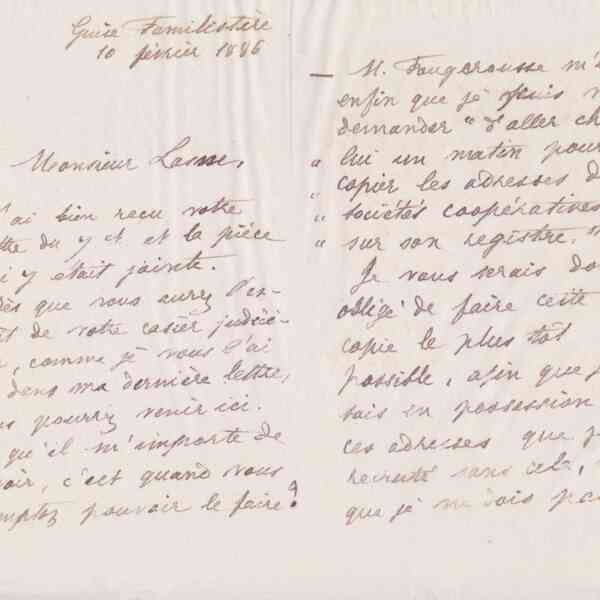 Guise Familistère
10 février 1886
Monsieur Lasne,
j'ai bien reçu votre
lettre du 7 ct et la pièce
qui y était jointe.
Dès que vous aurez l'ex-
trait de votre casier judici-
comme je vous l'ai
dans ma dernière lettre,
vous pourrez venir ici.
qu'il m'importe de
savoir, c'est quand vous
comptez pouvoir le faire?
— M. Fougerousse m'
enfin que je puis
demander "d'aller ch
" lui un matin pour
" copier les adresses d
" sociétés coopératives
" sur son registre."
Je vous serais do
obligé de faire cette
copie le plus tôt
possible, afin que j
sois en possession
ces adresses que j
sans cela,
que je ne dois pa